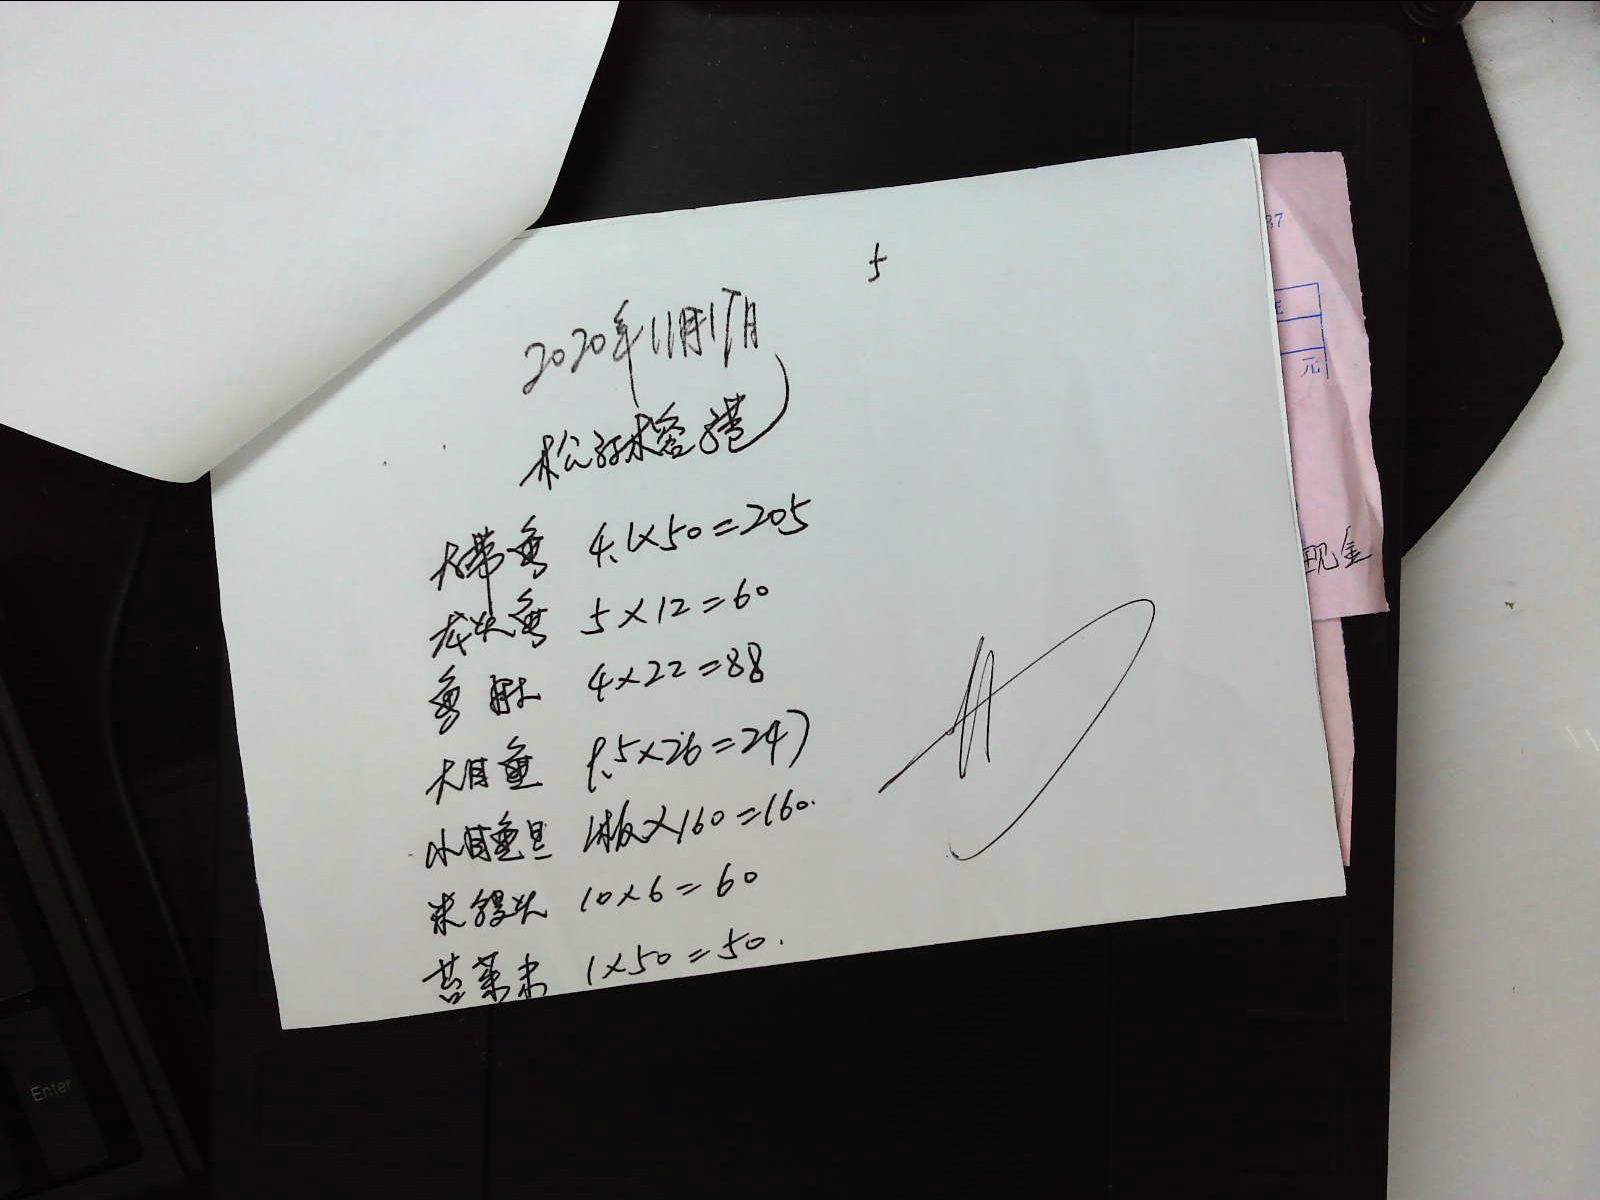 5
2020年11月17日
松江榕港
大带鱼 4.1×50=205
龙头鱼 5×12=60
鱼肚 4×22=88
大目鱼 9.5×26=247
小目鱼旦 1板×160=160.
米馒头 10×6=60
苦菜末 1×50=50.
37
元
现金
Enter